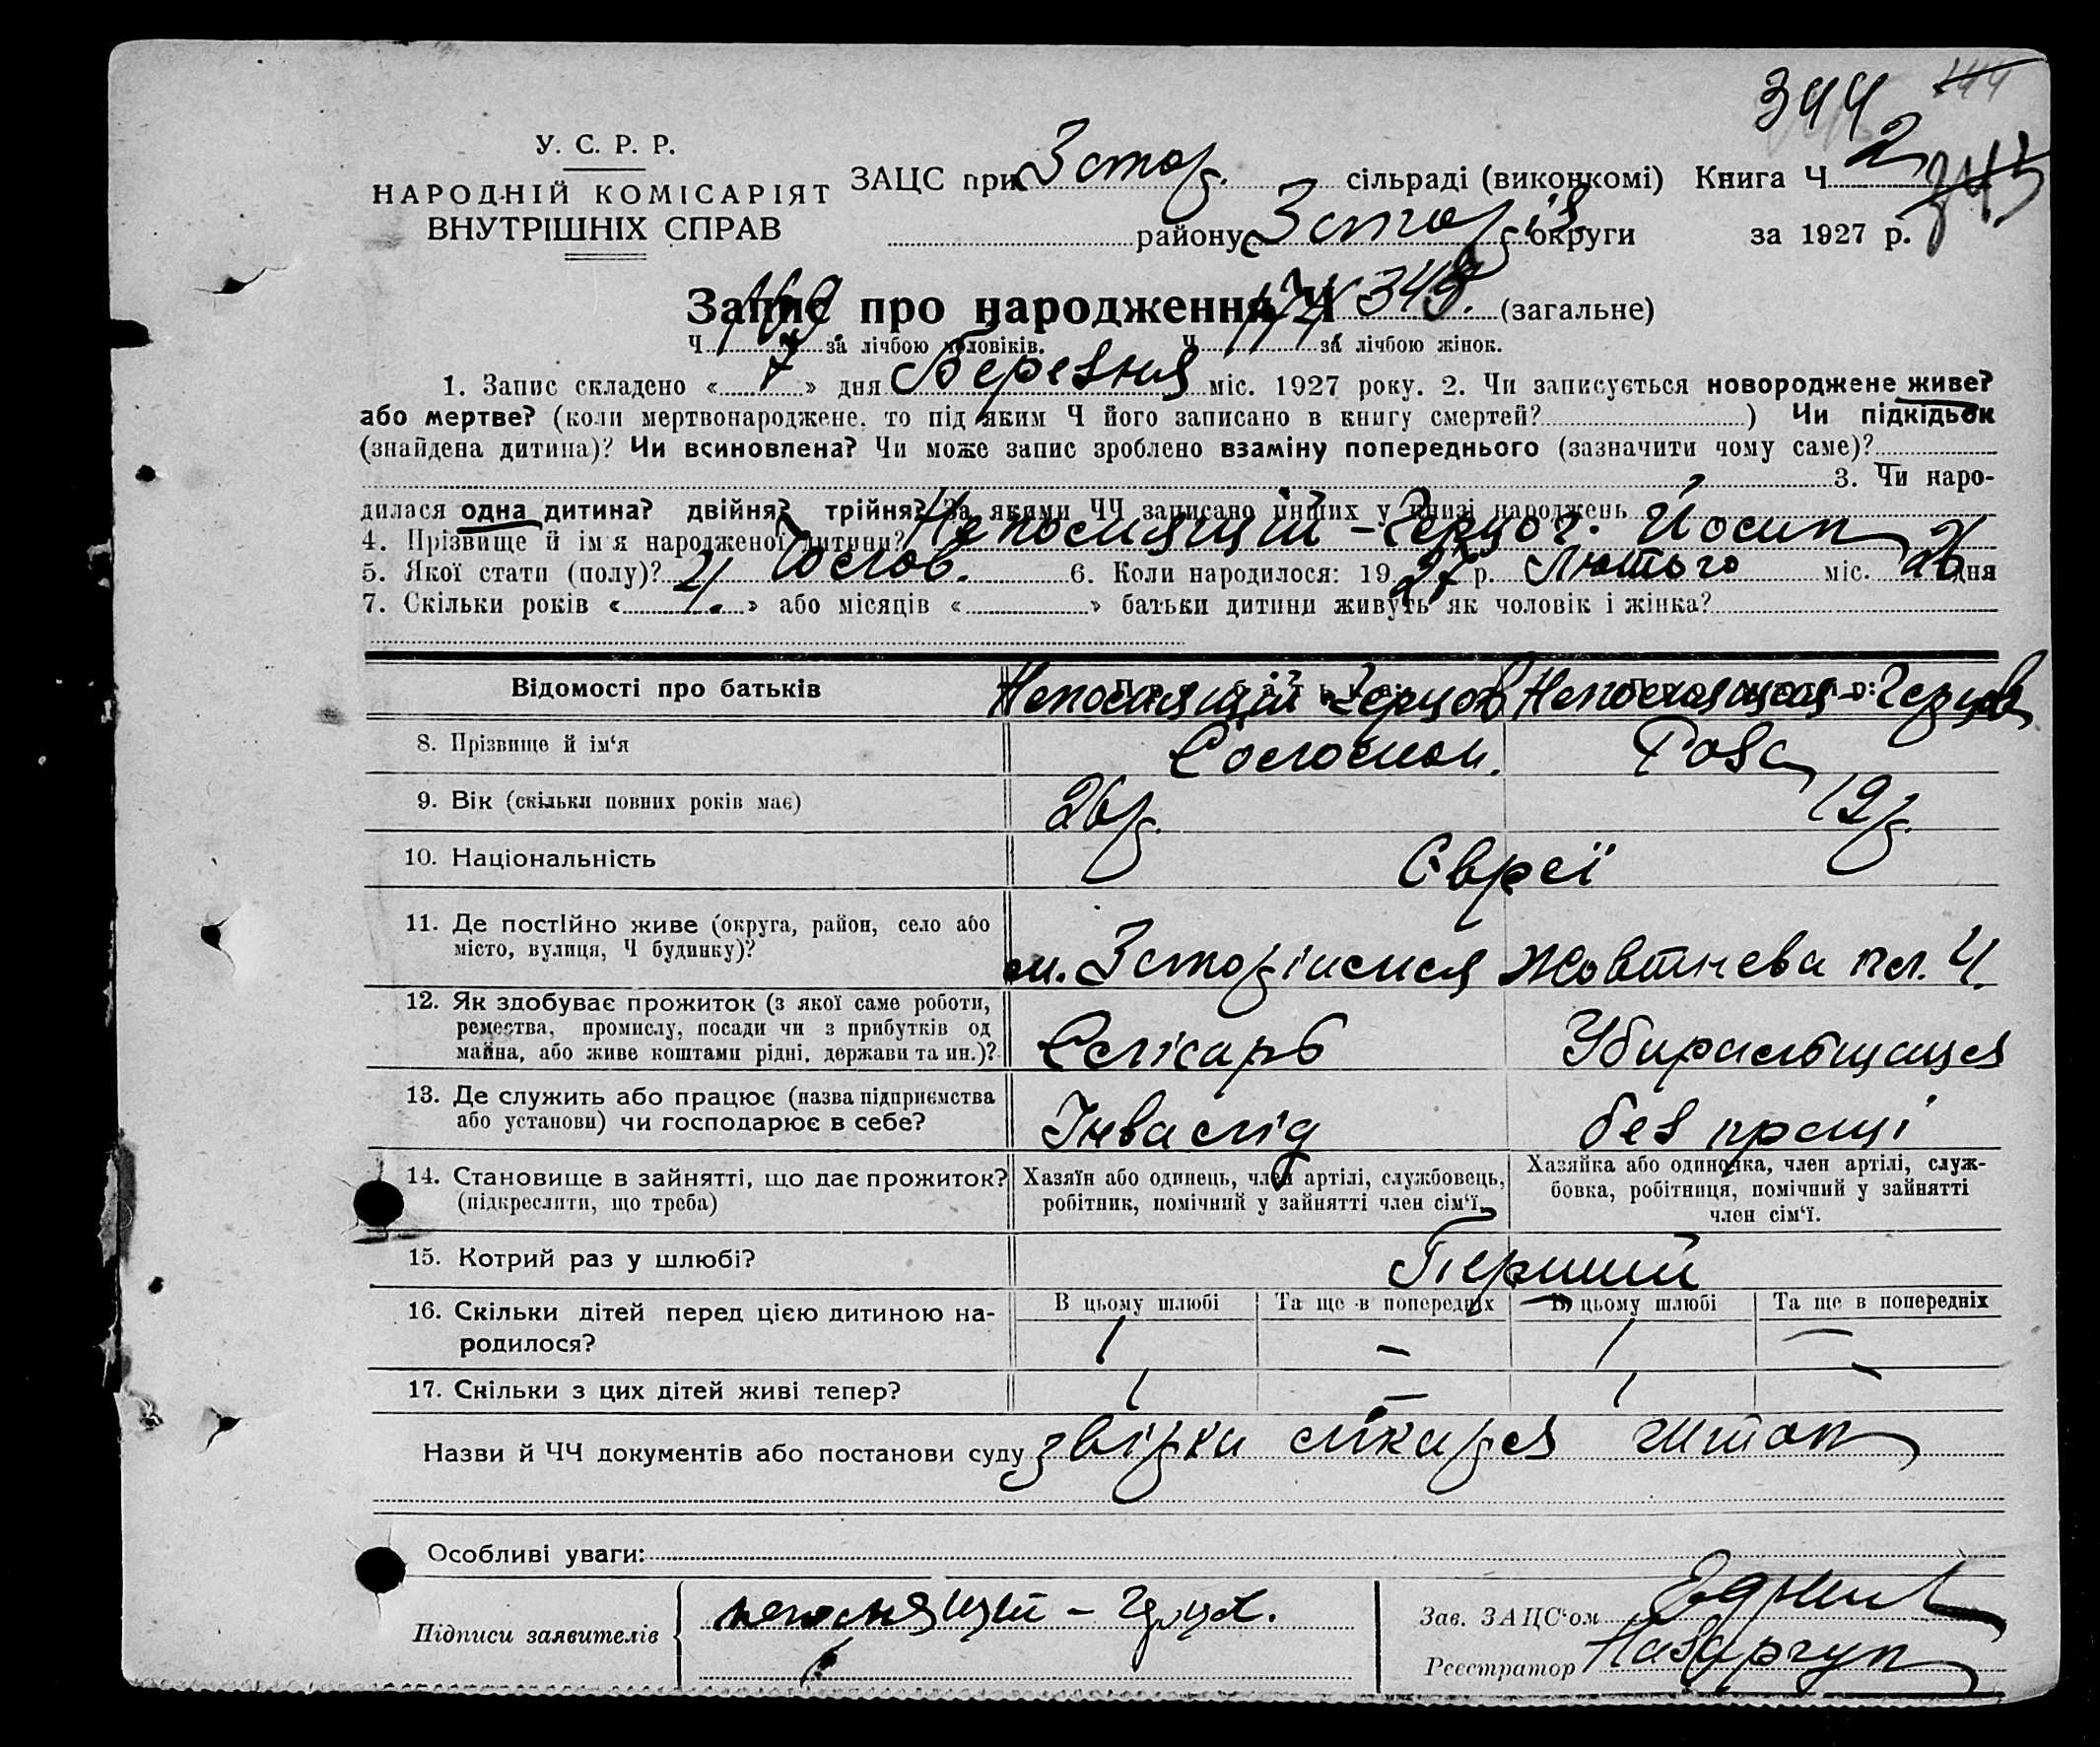 344
У. С. Р. Р.
НАРОДНІЙ КОМІСАРІЯТ
ВНУТРІШНІХ СПРАВ
ЗАЦС при Зстор. сільраді (виконкомі) Книга Ч 2
району Зстор. округи за 1927 р. 343
Запис про народження Ч 343. (загальне)
Ч 169 за лічбою чоловіків. Ч 174 за лічбою жінок.
1. Запис складено « 7 » дня Березня міс. 1927 року. 2. Чи записується новороджене живе?
або мертве? (коли мертвонароджене, то під яким Ч його записано в книгу смертей? ) Чи підкідьок
(знайдена дитина)? Чи всиновлена? Чи може запис зроблено взаміну попереднього (зазначити чому саме)?
3. Чи наро-
дилася одна дитина? двійня? трійня? За якими ЧЧ записано инших у книзі народжень
4. Прізвище й імя народженої дитини? Непомнящий - Герцог. Йосип
5. Якої стати (полу)? Чолов. 6. Коли народилося: 1927 р. Лютого міс. 26 дня
7. Скільки років « » або місяців « » батьки дитини живуть як чоловік і жінка?
Відомості про батьків
Непомнящий Герцов Непомнящая - Герцов
8. Прізвище й ім'я Соломон. Роза
9. Вік (скільки повних років має) 26 р. 19 р.
10. Національність Євреї
11. Де постійно живе (округа, район, село або
місто, вулиця, Ч будинку)?
м. Жовтнева пл. 4.
12. Як здобуває прожиток (з якої саме роботи,
ремества, промислу, посади чи з прибутків од
майна, або живе коштами рідні, держави та ин.)?
Слісарь Убиральщиця
13. Де служить або працює (назва підприємства
або установи) чи господарює в себе?
Інвалід без праці
14. Становище в зайнятті, що дає прожиток?
(підкреслити, що треба)
Хазяїн або одинець, член артілі, службовець,
робітник, помічний у зайнятті член сім'ї.
Хазяйка або одиночка, член артілі, служ-
бовка, робітниця, помічний у зайнятті
член сім'ї.
15. Котрий раз у шлюбі? Перший
16. Скільки дітей перед цією дитиною на-
родилося?
В цьому шлюбі Та ще в попередніх В цьому шлюбі Та ще в попередніх
1 — 1 —
17. Скільки з цих дітей живі тепер? 1 — 1 —
Назви й ЧЧ документів або постанови суду лікаря
Особливі уваги:
Підписи заявителів непомнящий - Герцог.
Зав. ЗАЦС'ом
Реєстратор Назарчук